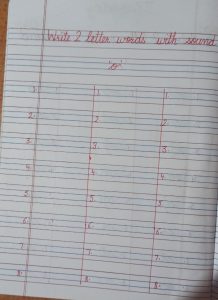 Write 2 letter words with sound
'o'
1. 1. 1.
2. 2. 2.
3. 3. 3.
4. 4. 4.
5. 5. 5.
6. 6. 6.
7. 7. 7.
8. 8. 8.